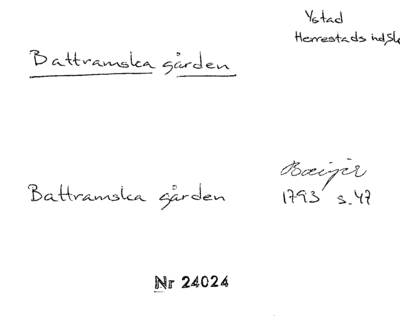 Ystad
Herrestads
Battramska gården
Battramska gården
1793 s. 47
Nr 24024